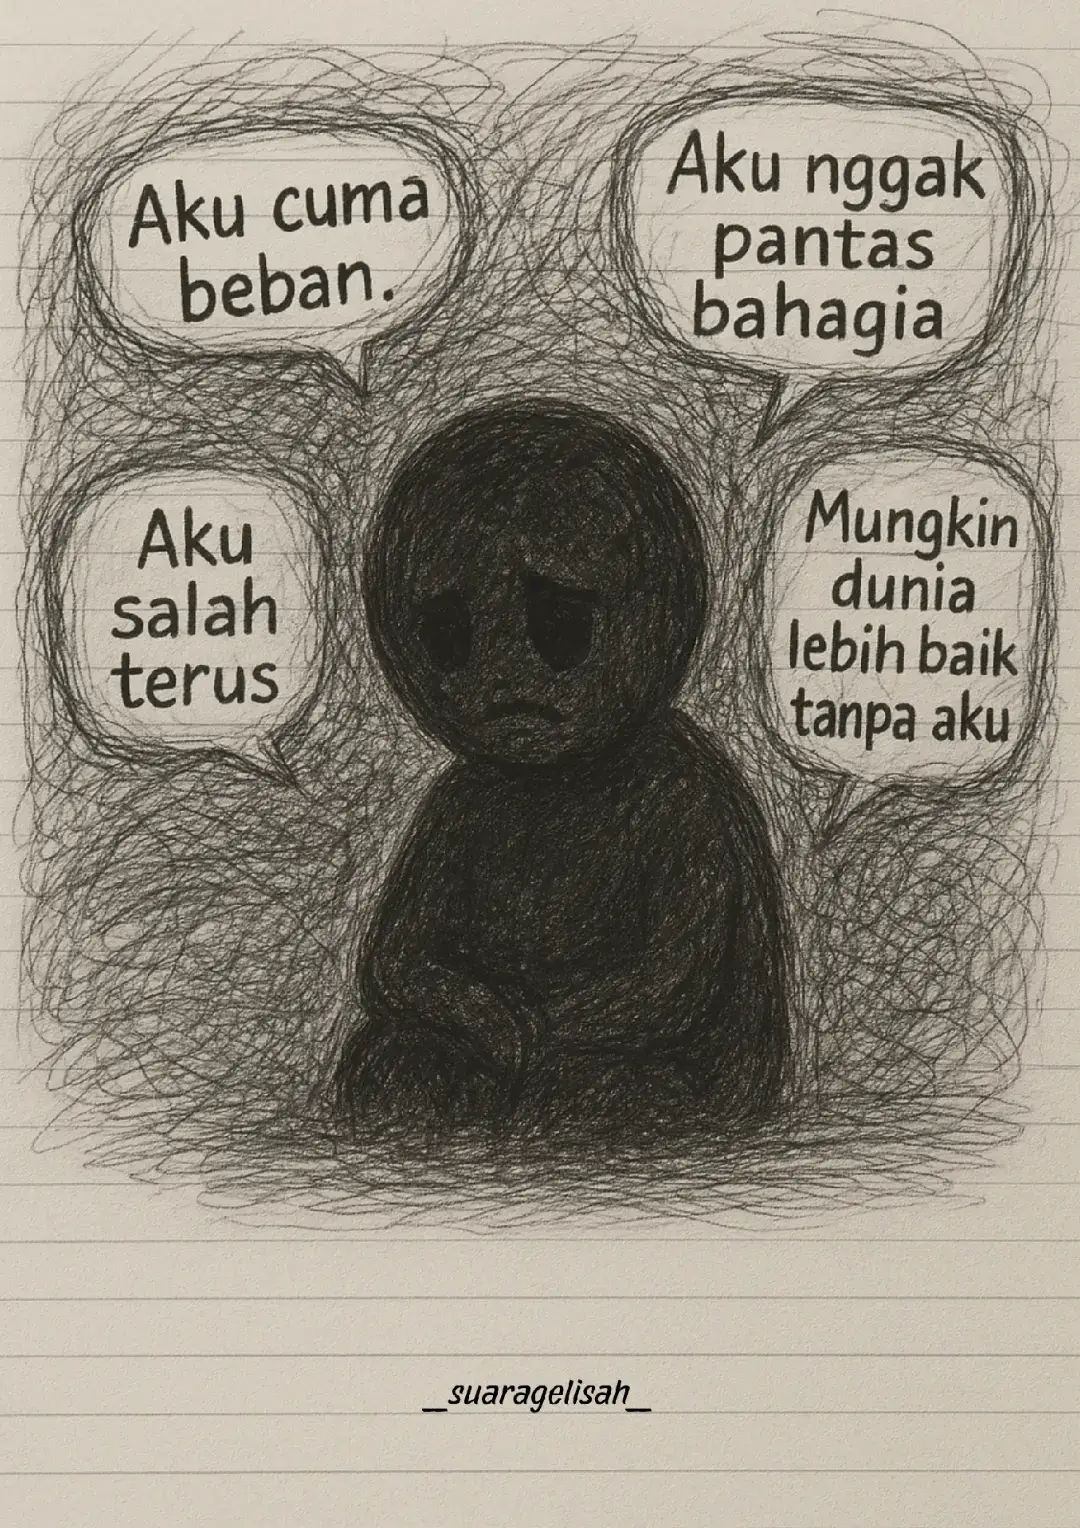 Aku cuma
beban.
Aku nggak
pantas
bahagia
Aku
salah
terus
Mungkin
dunia
lebih baik
tanpa aku
__suaragelisah__